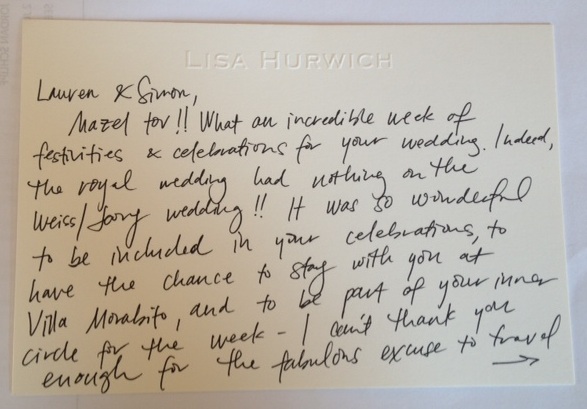 LISA HURWICH
Lauren & Simon,
Mazel tov!! What an incredible week of
festivities & celebrations for your wedding. Indeed,
the royal wedding had nothing on the
Weiss/ wedding!! It was so wonderful
to be included in your celebrations, to
have the chance to stay with you at
Villa Morabito, and to be part of your inner
circle for the week - I can't thank you
enough for the fabulous excuse to travel
→